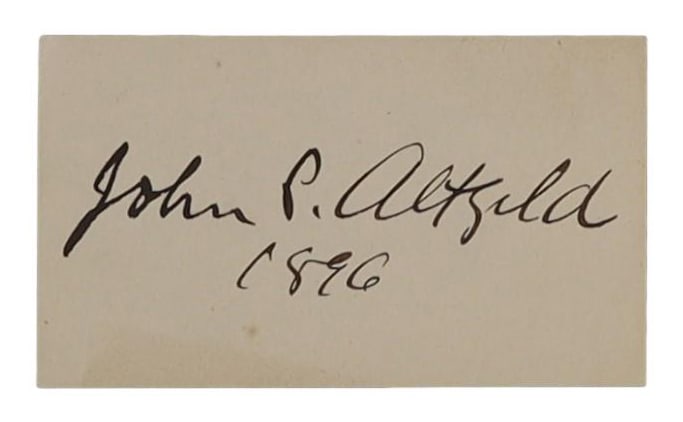 John P. Altgeld
1896